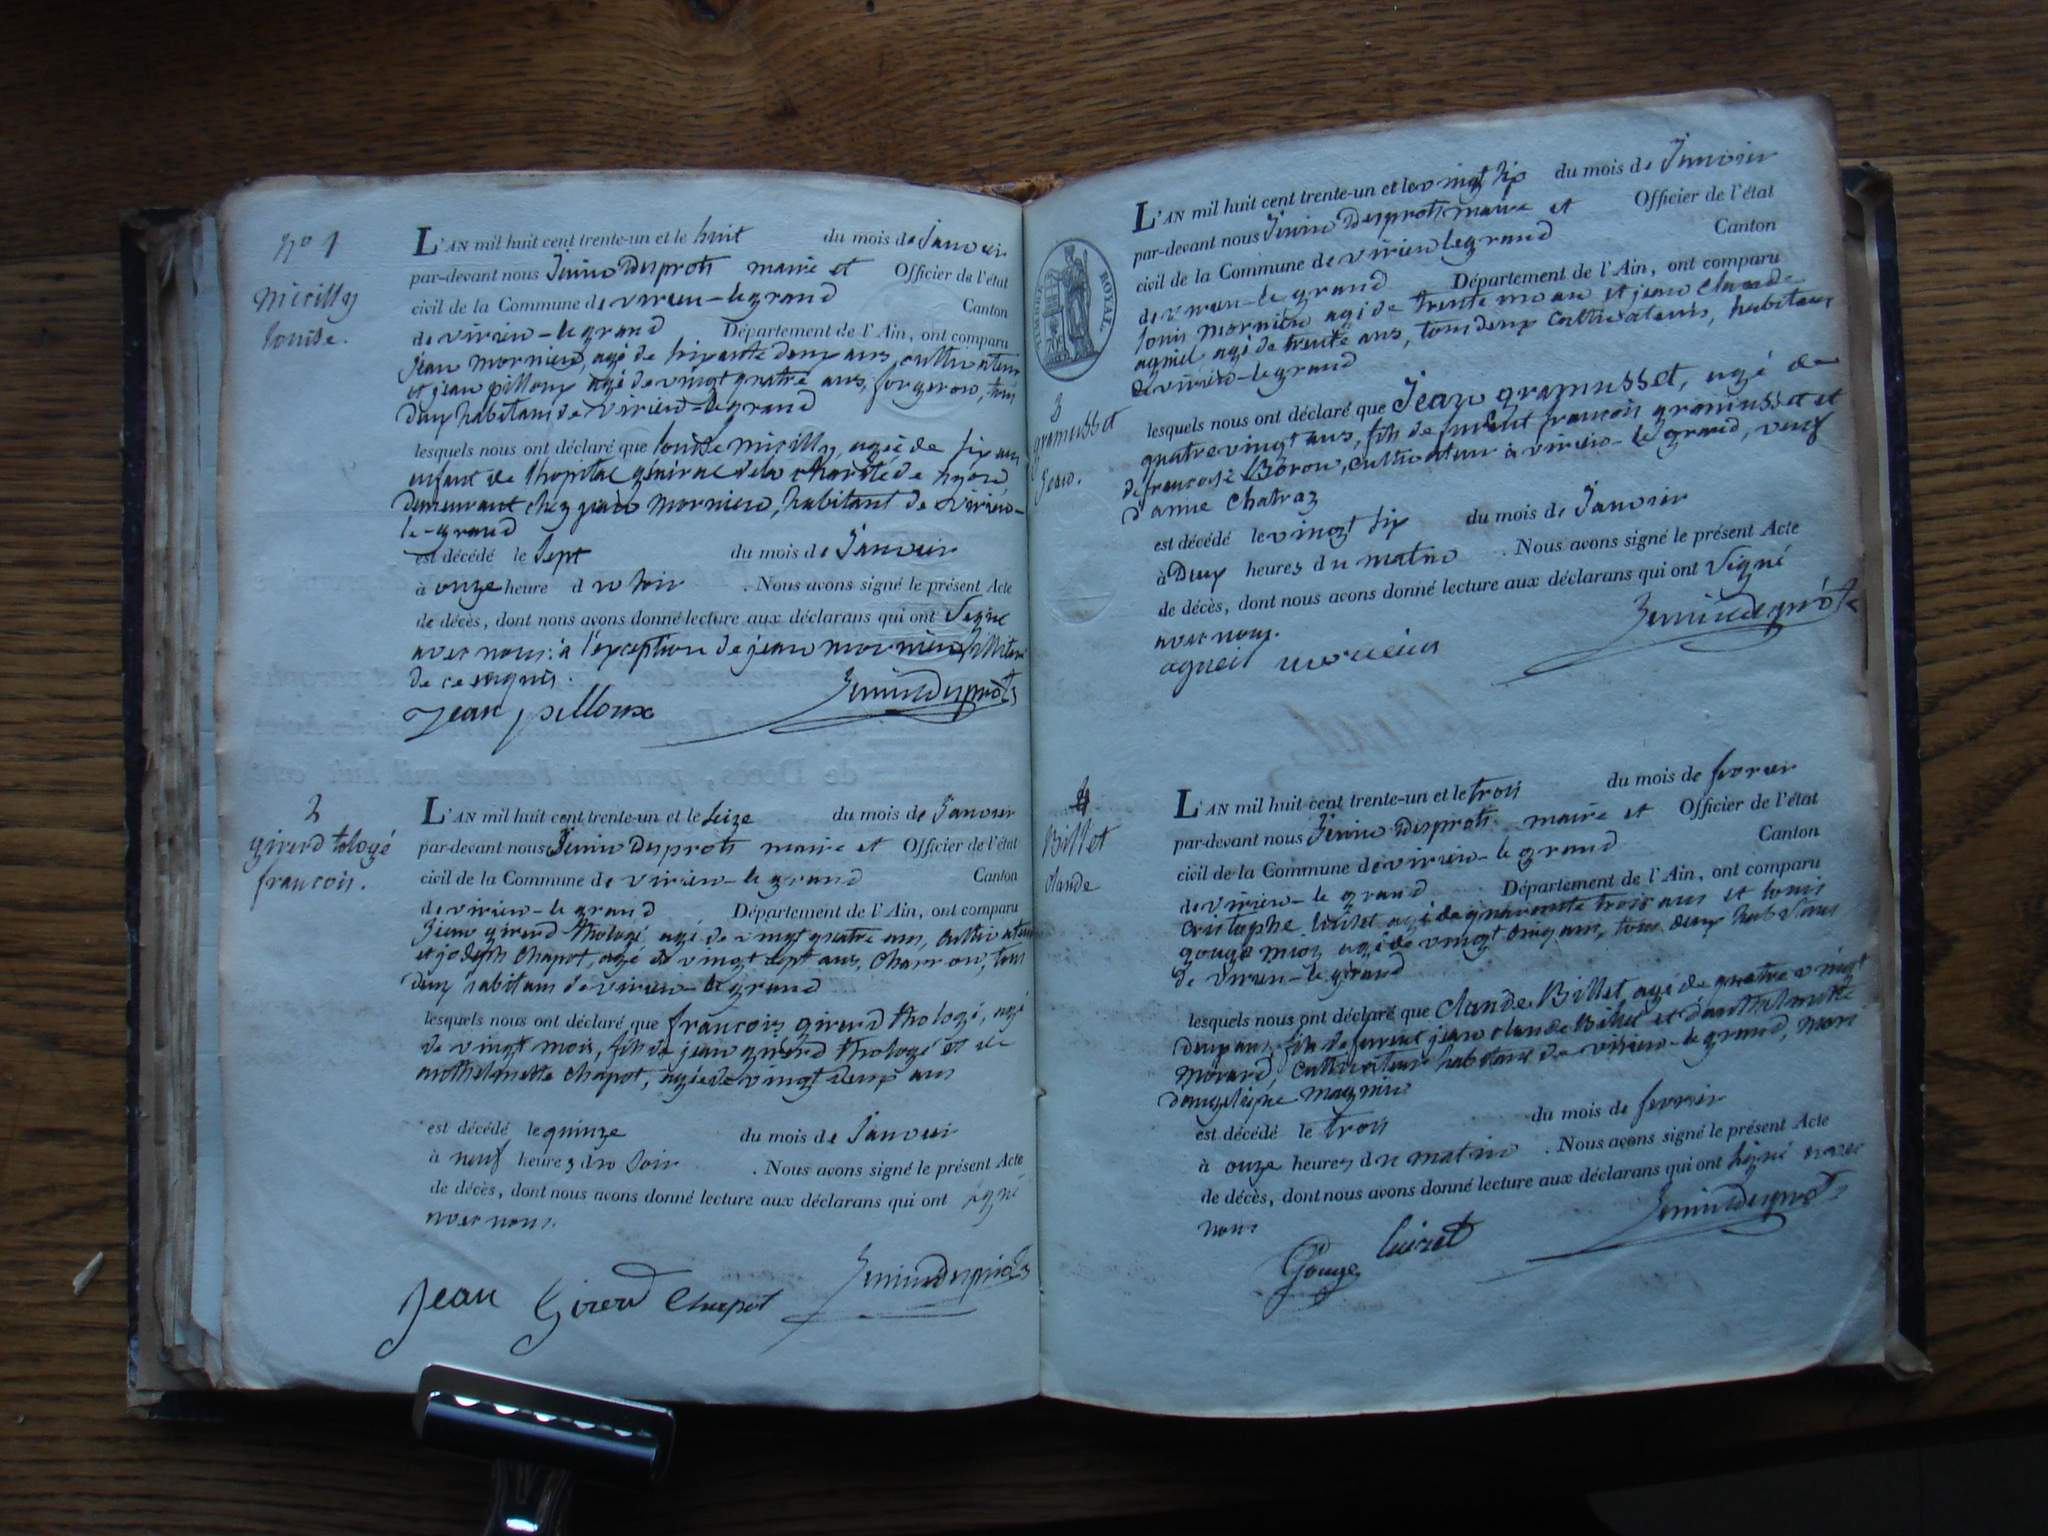 No 1
Mirilly
louise.
L'AN mil huit cent trente-un et le huit du mois de Janvier
par-devant nous Jenin Desprots maire et Officier de l'état
civil de la Commune de virieu-le grand Canton
de virieu-le grand Département de l'Ain, ont comparu
jean mornieu, agé de soixante deux ans, cultivateur
et jean pilloux agé de vingt quatre ans, forgeron, tous
deux habitans de virieu-le grand
lesquels nous ont déclaré que louise mirilly, agée de six ans
enfant de l'hopital général de la charité de
demeurant chez jean mornieu, habitant de virieu-
le-grand
est décédé le sept du mois de Janvier
à onze heure du soir . Nous avons signé le présent Acte
de décès, dont nous avons donné lecture aux déclarans qui ont signé
avec nous: à l'exception de jean mornieu
de ce requis.
Jean pilloux Jenin desprots
2
girerd tologé
francois.
L'AN mil huit cent trente-un et le seize du mois de Janvier
par-devant nous Jenin Desprots maire et Officier de l'état
civil de la Commune de virieu-le grand Canton
de virieu-le grand Département de l'Ain, ont comparu
Jean girerd thologé, agé de vingt quatre ans, cultivateur
et joseph chapot, agé de vingt sept ans, charron, tous
deux habitans de virieu-le grand
lesquels nous ont déclaré que francois girerd thologé, agé
de vingt mois, fils de jean girerd thologé et de
anthelmette chapot, agée de vingt deux ans
est décédé le quinze du mois de Janvier
à neuf heures du soir . Nous avons signé le présent Acte
de décès, dont nous avons donné lecture aux déclarans qui ont signé
avec nous.
Jean Girerd Chapot Jenin desprots
TIMBRE ROYAL.
3
gramusset
Jean.
L'AN mil huit cent trente-un et le vingt six du mois de Janvier
par-devant nous Jenin Desprots maire et Officier de l'état
civil de la Commune de virieu le grand Canton
de virieu-le grand Département de l'Ain, ont comparu
louis mornieu agé de trente et jean claude
agniel agé de trente ans, tous deux cultivateurs, habitans
de virieu-le grand
lesquels nous ont déclaré que Jean gramusset, agé de
quatre vingt ans, fils de francois gramusset et
de francoise Boron, cultivateur à virieu-le grand, veuf
d'annie Chatraz
est décédé le vingt six du mois de Janvier
à Deux heures du matin . Nous avons signé le présent Acte
de décès, dont nous avons donné lecture aux déclarans qui ont signé
avec nous.
agneil mornieu Jenin desprots
4
Billet
claude
L'AN mil huit cent trente-un et le trois du mois de fevrier
par-devant nous Jenin Desprots maire et Officier de l'état
civil de la Commune de virieu-le grand Canton
de virieu-le grand Département de l'Ain, ont comparu
cristophe luizet agé de quarante trois ans et louis
gouge agé de vingt cinq ans, tous deux habitans
de virieu-le grand
lesquels nous ont déclaré que claude Billet, agé de quatre vingt
deux ans, fils de jean claude Billet et d'anthelmette
morard, cultivateur habitant de virieu-le grand, mari
magnin
est décédé le trois du mois de fevrier
à onze heures du matin . Nous avons signé le présent Acte
de décès, dont nous avons donné lecture aux déclarans qui ont signé avec
nous
Gouge luizet Jenin desprots